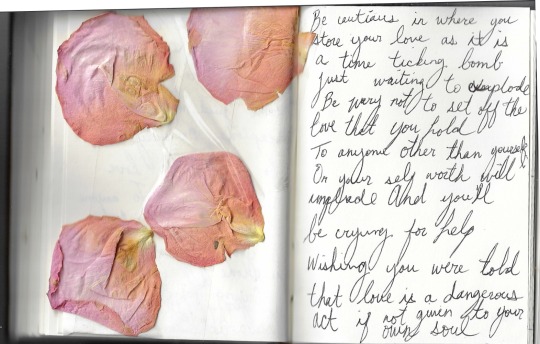 Be cautious in where you
store your love as it is
a time ticking bomb
just waiting to explode
Be wary not to set off the
love that you hold
To anyone other than yourself
Or your self worth will
implode And you'll
be crying for help
Wishing you were told
that love is a dangerous
act if not given to your
own soul